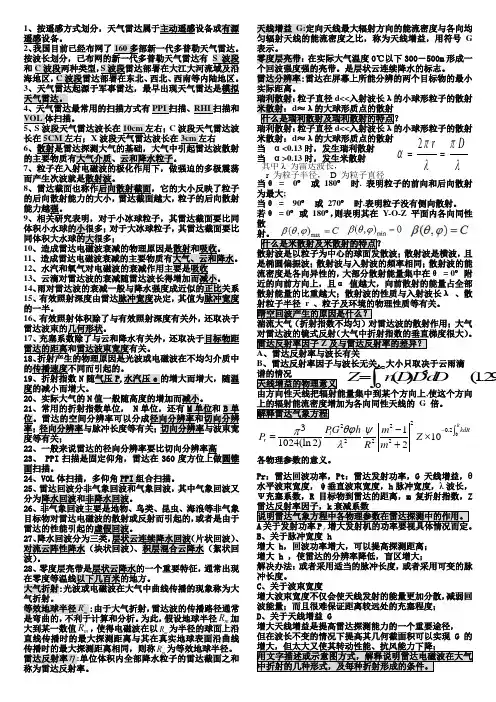 1、按遥感方式划分，天气雷达属于主动遥感设备或有源
遥感设备。
2、我国目前已经布网了 160 多部新一代多普勒天气雷达。
按波长划分，已布网的新一代多普勒天气雷达有 S 波段
和 C 波段两种类型，S 波段雷达部署在大江大河流域及沿
海地区，C 波段雷达部署在东北、西北、西南等内陆地区。
3、天气雷达起源于军事雷达，最早出现天气雷达是模拟
天气雷达。
4、天气雷达最常用的扫描方式有 PPI 扫描、RHI 扫描和
VOL 体扫描。
5、S 波段天气雷达波长在 10cm 左右；C 波段天气雷达波
长在 5CM 左右；X 波段天气雷达波长在 3cm 左右
6、散射是雷达探测大气的基础，大气中引起雷达波散射
的主要物质有大气介质、云和降水粒子。
7、粒子在入射电磁波的极化作用下，做强迫的多极震荡
而产生次波就是散射波。
8、雷达截面也称作后向散射截面，它的大小反映了粒子
的后向散射能力的大小，雷达截面越大，粒子的后向散射
能力越强。
9、相关研究表明，对于小冰球粒子，其雷达截面要比同
体积小水球的小很多；对于大冰球粒子，其雷达截面要比
同体积大水球的大很多；
10、造成雷达电磁波衰减的物理原因是散射和吸收。
11、造成雷达电磁波衰减的主要物质有大气、云和降水。
12、水汽和氧气对电磁波的衰减作用主要是吸收
13、云滴对雷达波的衰减随雷达波长得增加而减小。
14、雨对雷达波的衰减一般与降水强度成近似的正比关系
15、有效照射深度由雷达脉冲宽度决定，其值为脉冲宽度
的一半。
16、有效照射体积除了与有效照射深度有关外，还取决于
雷达波束的几何形状。
17、充塞系数除了与云和降水有关外，还取决于目标物距
雷达的距离和雷达波束宽度有关。
18、折射产生的物理原因是光波或电磁波在不均匀介质中
的传播速度不同而引起的。
19、折射指数 N 随气压 P,水汽压 e 的增大而增大，随温
度的减小而增大。
20、实际大气的 N 值一般随高度的增加而减小。
21、常用的折射指数单位， N 单位，还有 M 单位和 B 单
位。雷达的空间分辨率可以分成径向分辨率和切向分辨
率；径向分辨率与脉冲长度等有关；切向分辨率与波束宽
度等有关；
22、一般来说雷达的径向分辨率要比切向分辨率高
23、 PPI 扫描是固定仰角，雷达在 360 度方位上做圆锥
面扫描。
24、VOL 体扫描，多仰角 PPI 组合扫描。
25、雷达回波分非气象回波和气象回波，其中气象回波又
分为降水回波和非降水回波。
26、非气象回波主要是地物、鸟类、昆虫、海浪等非气象
目标物对雷达电磁波的散射或反射而引起的，或者是由于
雷达的性能引起的虚假回波。
27、降水回波分为三类,层状云连续降水回波（片状回波）、
对流云阵性降水（块状回波）、积层混合云降水（絮状回
波）。
28、零度层亮带是层状云降水的一个重要特征，通常出现
在零度等温线以下几百米的地方。
大气折射:光波或电磁波在大气中曲线传播的现象称为大
气折射。
等效地球半径:由于大气折射，雷达波的传播路径通常
是弯曲的，不利于计算和分析，为此，假设地球半径加
大到某一数值，使得电磁波在以为半径的球面上沿
直线传播时的最大探测距离与其在真实地球表面沿曲线
传播时的最大探测距离相同，则称为等效地球半径。
雷达反射率η:单位体积内全部降水粒子的雷达截面之和
称为雷达反射率。
天线增益 G:定向天线最大辐射方向的能流密度与各向均
匀辐射天线的能流密度之比，称为天线增益，用符号 G
表示。
零度层亮带：在实际大气温度 0℃以下 300—500m 形成一
个回波强度强的亮带，是层状云连续降水的标志。
雷达分辨率：雷达在屏幕上所能分辨的两个目标物的最小
实际距离。
瑞利散射：粒子直径 d<<入射波长λ的小球形粒子的散射
米散射：d≈λ的大球形质点的散射
什么是瑞利散射及瑞利散射的特点?
瑞利散射：粒子直径 d<<入射波长λ的小球形粒子的散射
米散射：d≈λ的大球形质点的散射
当 α<0.13 时，发生瑞利散射
当 α>0.13 时，发生米散射
α = 2πr/λ = πD/λ
其中λ为雷达波长，
r 为粒子半径， D 为粒子直径
当θ = 0° 或 180° 时．表明粒子的前向和后向散射
为最大;
当θ = 90° 或 270° 时．表明粒子没有侧向散射。
若θ = 0° 或 180°，则表明其在 Y-O-Z 平面内各向同性散
射。 β(θ,φ)max = C β(θ,φ)min = 0 β(θ,φ) = C
什么是米散射及米散射的特点?
散射波是以粒子为中心的球面反散波；散射波是横波，且
是椭圆偏振波；散射波与入射波的频率相同；散射波的能
流密度是各向异性的，大部分散射能量集中在θ = 0° 附
近的向前方向上，且α 值越大，向前散射的能量占全部
散射能量的比重越大；散射波的性质与入射波长λ 、散
射粒子半径 r 、粒子及环境的物理性质等有关。
晴空回波产生的原因是什么?
湍流大气（折射指数不均匀）对雷达波的散射作用；大气
对雷达波的镜式反射(大气中折射指数的垂直梯度很大)。
雷达反射率因子 Z 及与雷达反射率的差异?
A、雷达反射率与波长有关
B、雷达反射率因子与波长无关，大小只取决于云雨滴
谱的情况
天线增益的物理意义
由方向性天线把辐射能量集中到某个方向上,使这个方向
上的辐射能流密度增加为各向同性天线的 G 倍。
解释雷达气象方程
各物理参数的意义。
Pr：雷达回波功率，Pt：雷达发射功率，G 天线增益，θ
水平波束宽度，φ垂直波束宽度，h 脉冲宽度，λ波长，
Ψ充塞系数，R 目标物到雷达的距离，m 复折射指数，Z
雷达反射率因子，k 衰减系数
说明雷达气象方程中各物理参数在雷达探测中的作用。
A 关于发射功率 P，增大发射机的功率要视具体情况而定。
B、关于脉冲宽度 h
增大 h，回波功率增大，可以提高探测距离；
增大 h ，使雷达的分辨率低，盲区增大；
解决办法：或者采用适当的脉冲长度，或者采用可变的脉
冲长度。
C、关于波束宽度
增大波束宽度不仅会使天线发射的能量更加分散,减弱回
波能量；而且很难保证距离较远处的充塞程度；
D、关于天线增益 G
增大天线增益是提高雷达探测能力的一个重要途径，
但在波长不变的情况下提高其几何截面积可以实现 G 的
增大，但太大又使其转动性能、抗风能力下降；
用文字描述或示意图方式，解释说明雷达电磁波在大气
中折射的几种形式，及每种折射形成的条件。